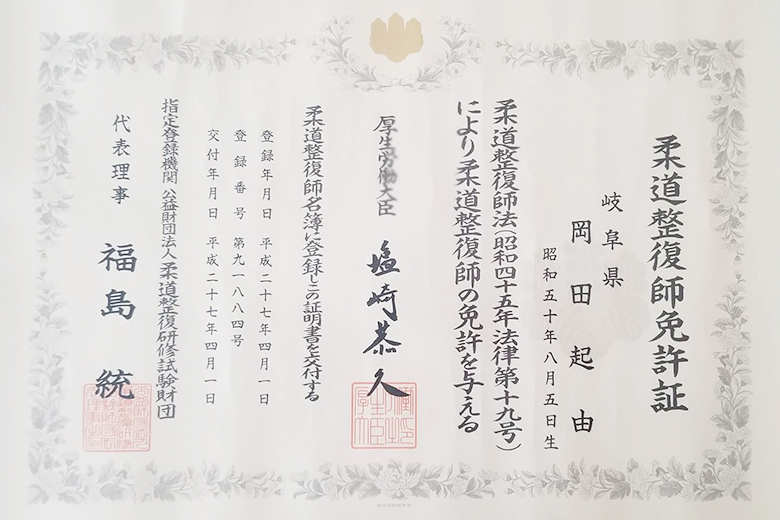 柔道整復師免許証
岐阜県
岡田起由
昭和五十年八月五日生
柔道整復師法(昭和四十五年法律第十九号)
により柔道整復師の免許を与える
厚生労働大臣 塩崎恭久
柔道整復師名簿に登録しこの証明書を交付する
登録年月日 平成二十七年四月一日
登録番号 第九一八八四号
交付年月日 平成二十七年四月一日
指定登録機関 公益財団法人柔道整復研修試験財団
代表理事 福島統